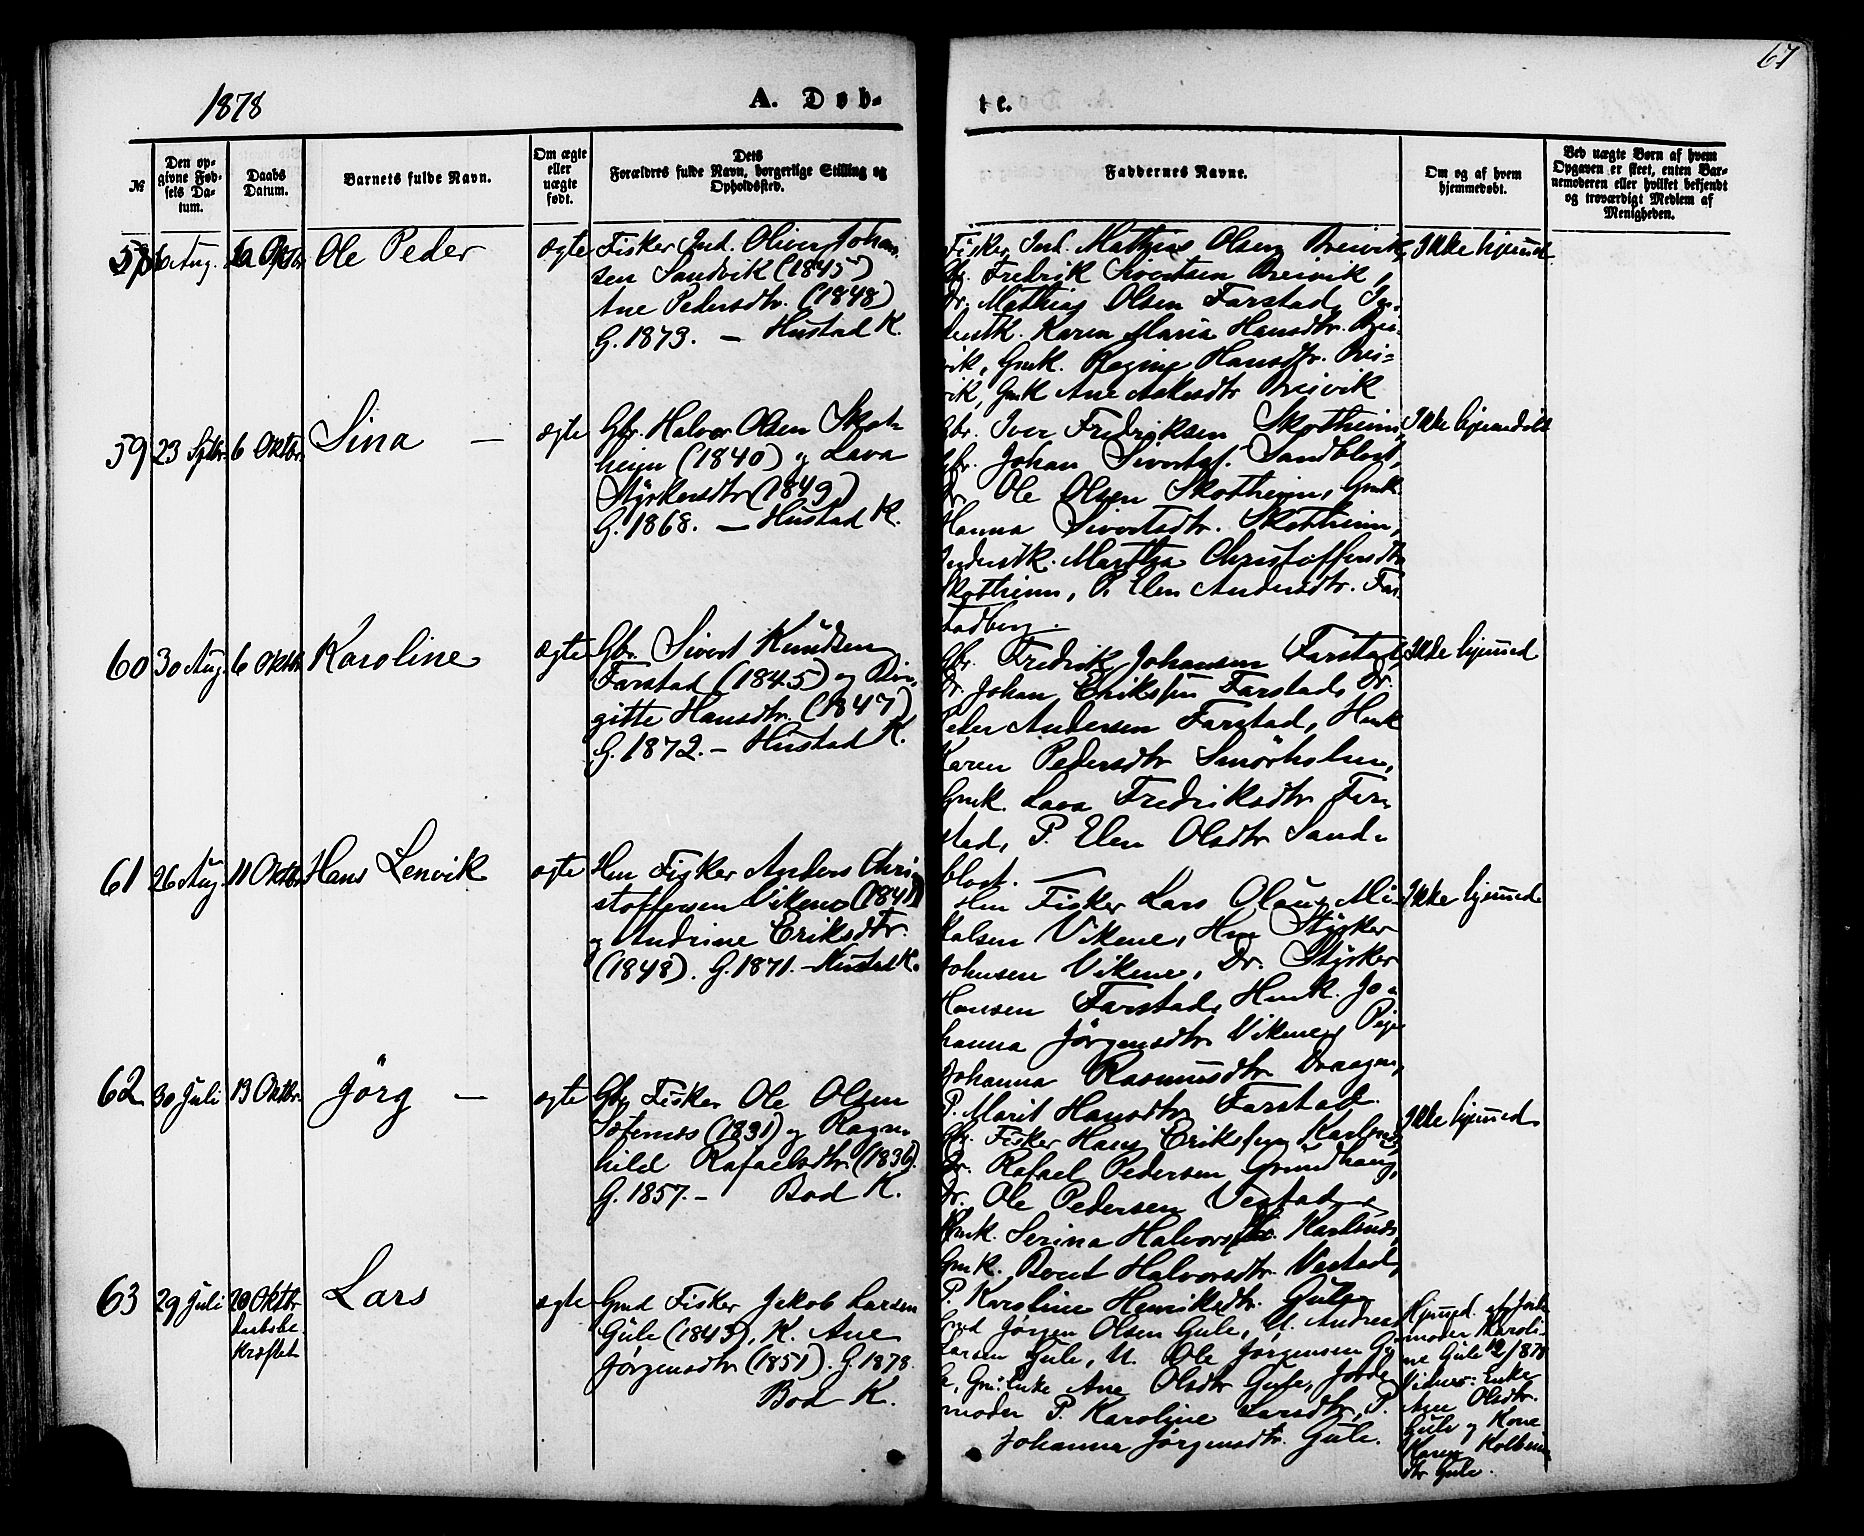 67
1878
A. Døb-
te.
№
Den op-
givne Fød-
sels Da-
tum.
Daabs
Datum.
Barnets fulde Navn.
Om ægte
eller
uægte
født.
Dets
Forældres fulde Navn, borgerlige Stilling og
Opholdssted.
Faddernes Navne.
Om og af hvem
hjemmedøbt.
Ved uægte Børn af hvem
Opgaven er skeet, enten Bar-
nemoderen eller hvilket bekjendt
og troværdigt Medlem af
Menigheden.
58
Aug.
Oktbr.
Ole Peder
ægte
Fisker Ind. Oliver Johan
sen Sandvik (1845)
Ane Pedersdtr. (1848)
G. 1873. — Hustad K.
Fisker Ind. Mathias Olsen Breivik,
Fredrik Sivertsen Breivik,
Dr. Mathias Olsen Farstad, In-
derstk. Karen Maria Hansdtr. Brei-
vik, Gmk. Regine Hansdtr. Brei-
vik, Gmk Ane Aslaksdtr Breivik
Ikke hjemmed.
59
23 Sptbr.
6 Oktbr.
Sina —
ægte
Gbr. Halvor Olsen Skot-
heim (1840) og Lava
Styrkersdtr (1849)
G. 1868. — Hustad K.
Gbr. Iver Fredriksen Skotheim,
Gbr. Johan Sivertsf. Sandblost,
Dr. Ole Olsen Skotheim, Gmk.
Hanna Sivertsdtr. Skotheim,
Inderstk. Martha Christoffersdtr
Skotheim, P. Elen Andersdtr. Far-
stadberg.
Ikke hjemmedøbt
60
30 Aug.
6 Oktbr.
Karoline
ægte
Gbr. Sivert Knudsen
Farstad (1845) og Bir-
gitte Hansdtr. (1847)
G. 1872. — Hustad K.
Gbr. Fredrik Johansen Farstad,
Dr. Johan Eriksen Farstad, Dr.
Peder Andersen Farstad, Hmk
Karen Pedersdtr Smørholm,
Gmk. Lava Fredriksdtr Far-
stad, P. Elen Olsdtr Sand-
blost. —
Ikke hjemmed
61
26 Aug.
11 Oktbr.
Hans Lenvik
ægte
Hm Fisker Anders Chri-
stoffersen Vikene (1841)
og Andrine Eriksdtr.
(1848). G. 1871. — Hustad K.
Hm Fisker Lars Olaus Mi-
kalsen Vikene, Hm Styrker
Johnsen Vikene, Dr. Styrker
Hansen Farstad, Hmk. Jo-
hanna Jørgensdtr Vikene, Pige
Johanna Rasmusdtr Draagen,
P. Marit Hansdtr Farstad.
Ikke hjemmed.
62
30 Juli
13 Oktbr.
Jörg —
ægte
Gbr Fisker Ole Olsen
(1831) og Ragn-
hild Rafaelsdtr. (1836)
G. 1857. — Bod K.
Gbr. Fisker Hans Eriksen Karlsnes,
Dr. Rafael Pedersen Grundhaug,
Dr. Ole Pedersen Vestad,
Gmk. Serina Halvorsdtr. Karlsnes,
Gmk. Beret Halvorsdtr. Vestad,
P. Karoline Henriksdtr. Gule
Ikke hjemmed.
63
29 Juli
20 Oktbr
daabsbe-
kræftet
Lars
ægte
Gmd Fisker Jakob Larsen
Gule (1845), K. Ane
Jørgensdtr (1851). G. 1878.
Bod K.
Gmd Jørgen Olsen Gule, U. Andreas
Larsen Gule, U. Ole Jørgensen Gu-
le, Gm: Enke Ane Olsdtr Gule, Jorde-
moder P. Karoline Larsdtr, P.
Johanna Jørgensdtr. Gule.
Hjemmed. af Jorde-
moder Karoli-
ne Gule
Vidner: Enke
Ane Olsdtr.
Gule og Kone
Karen
dtr Gule.